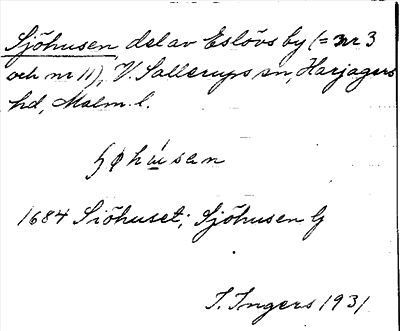 Sjöhusen del av Eslövs by (= nr 3
och nr 11), V. Sallerups sn, Harjagers
hd, Malm. l.
1684 Siöhuset; Sjöhusen G
I. Ingers 1931